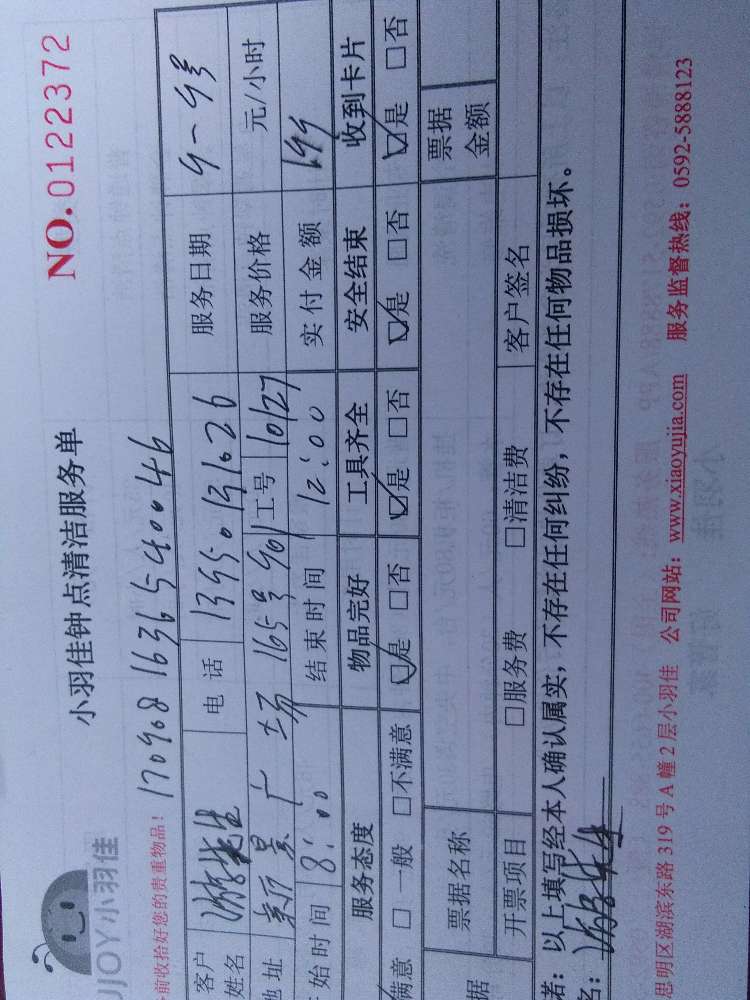 UJOY小羽佳
小羽佳钟点清洁服务单
NO. 0122372
前收拾好您的贵重物品！
170908 1636540046
客户姓名
电话 13950131026
服务日期 9-9号
地址 广场 165号901
工号 10127
服务价格 元/小时
始时间 8:00
结束时间 12:00
实付金额 149
服务态度 物品完好 工具齐全 安全结束 收到卡片
满意 □一般 □不满意 ☑是 □否 ☑是 □否 ☑是 □否 ☑是 □否
据 票据名称 票据金额
开票项目 □服务费 □清洁费 客户签名
诺：以上填写经本人确认属实，不存在任何纠纷，不存在任何物品损坏。
名：
思明区湖滨东路 319 号 A 幢 2 层小羽佳 公司网站：www.xiaoyujia.com 服务监督热线：0592-5888123